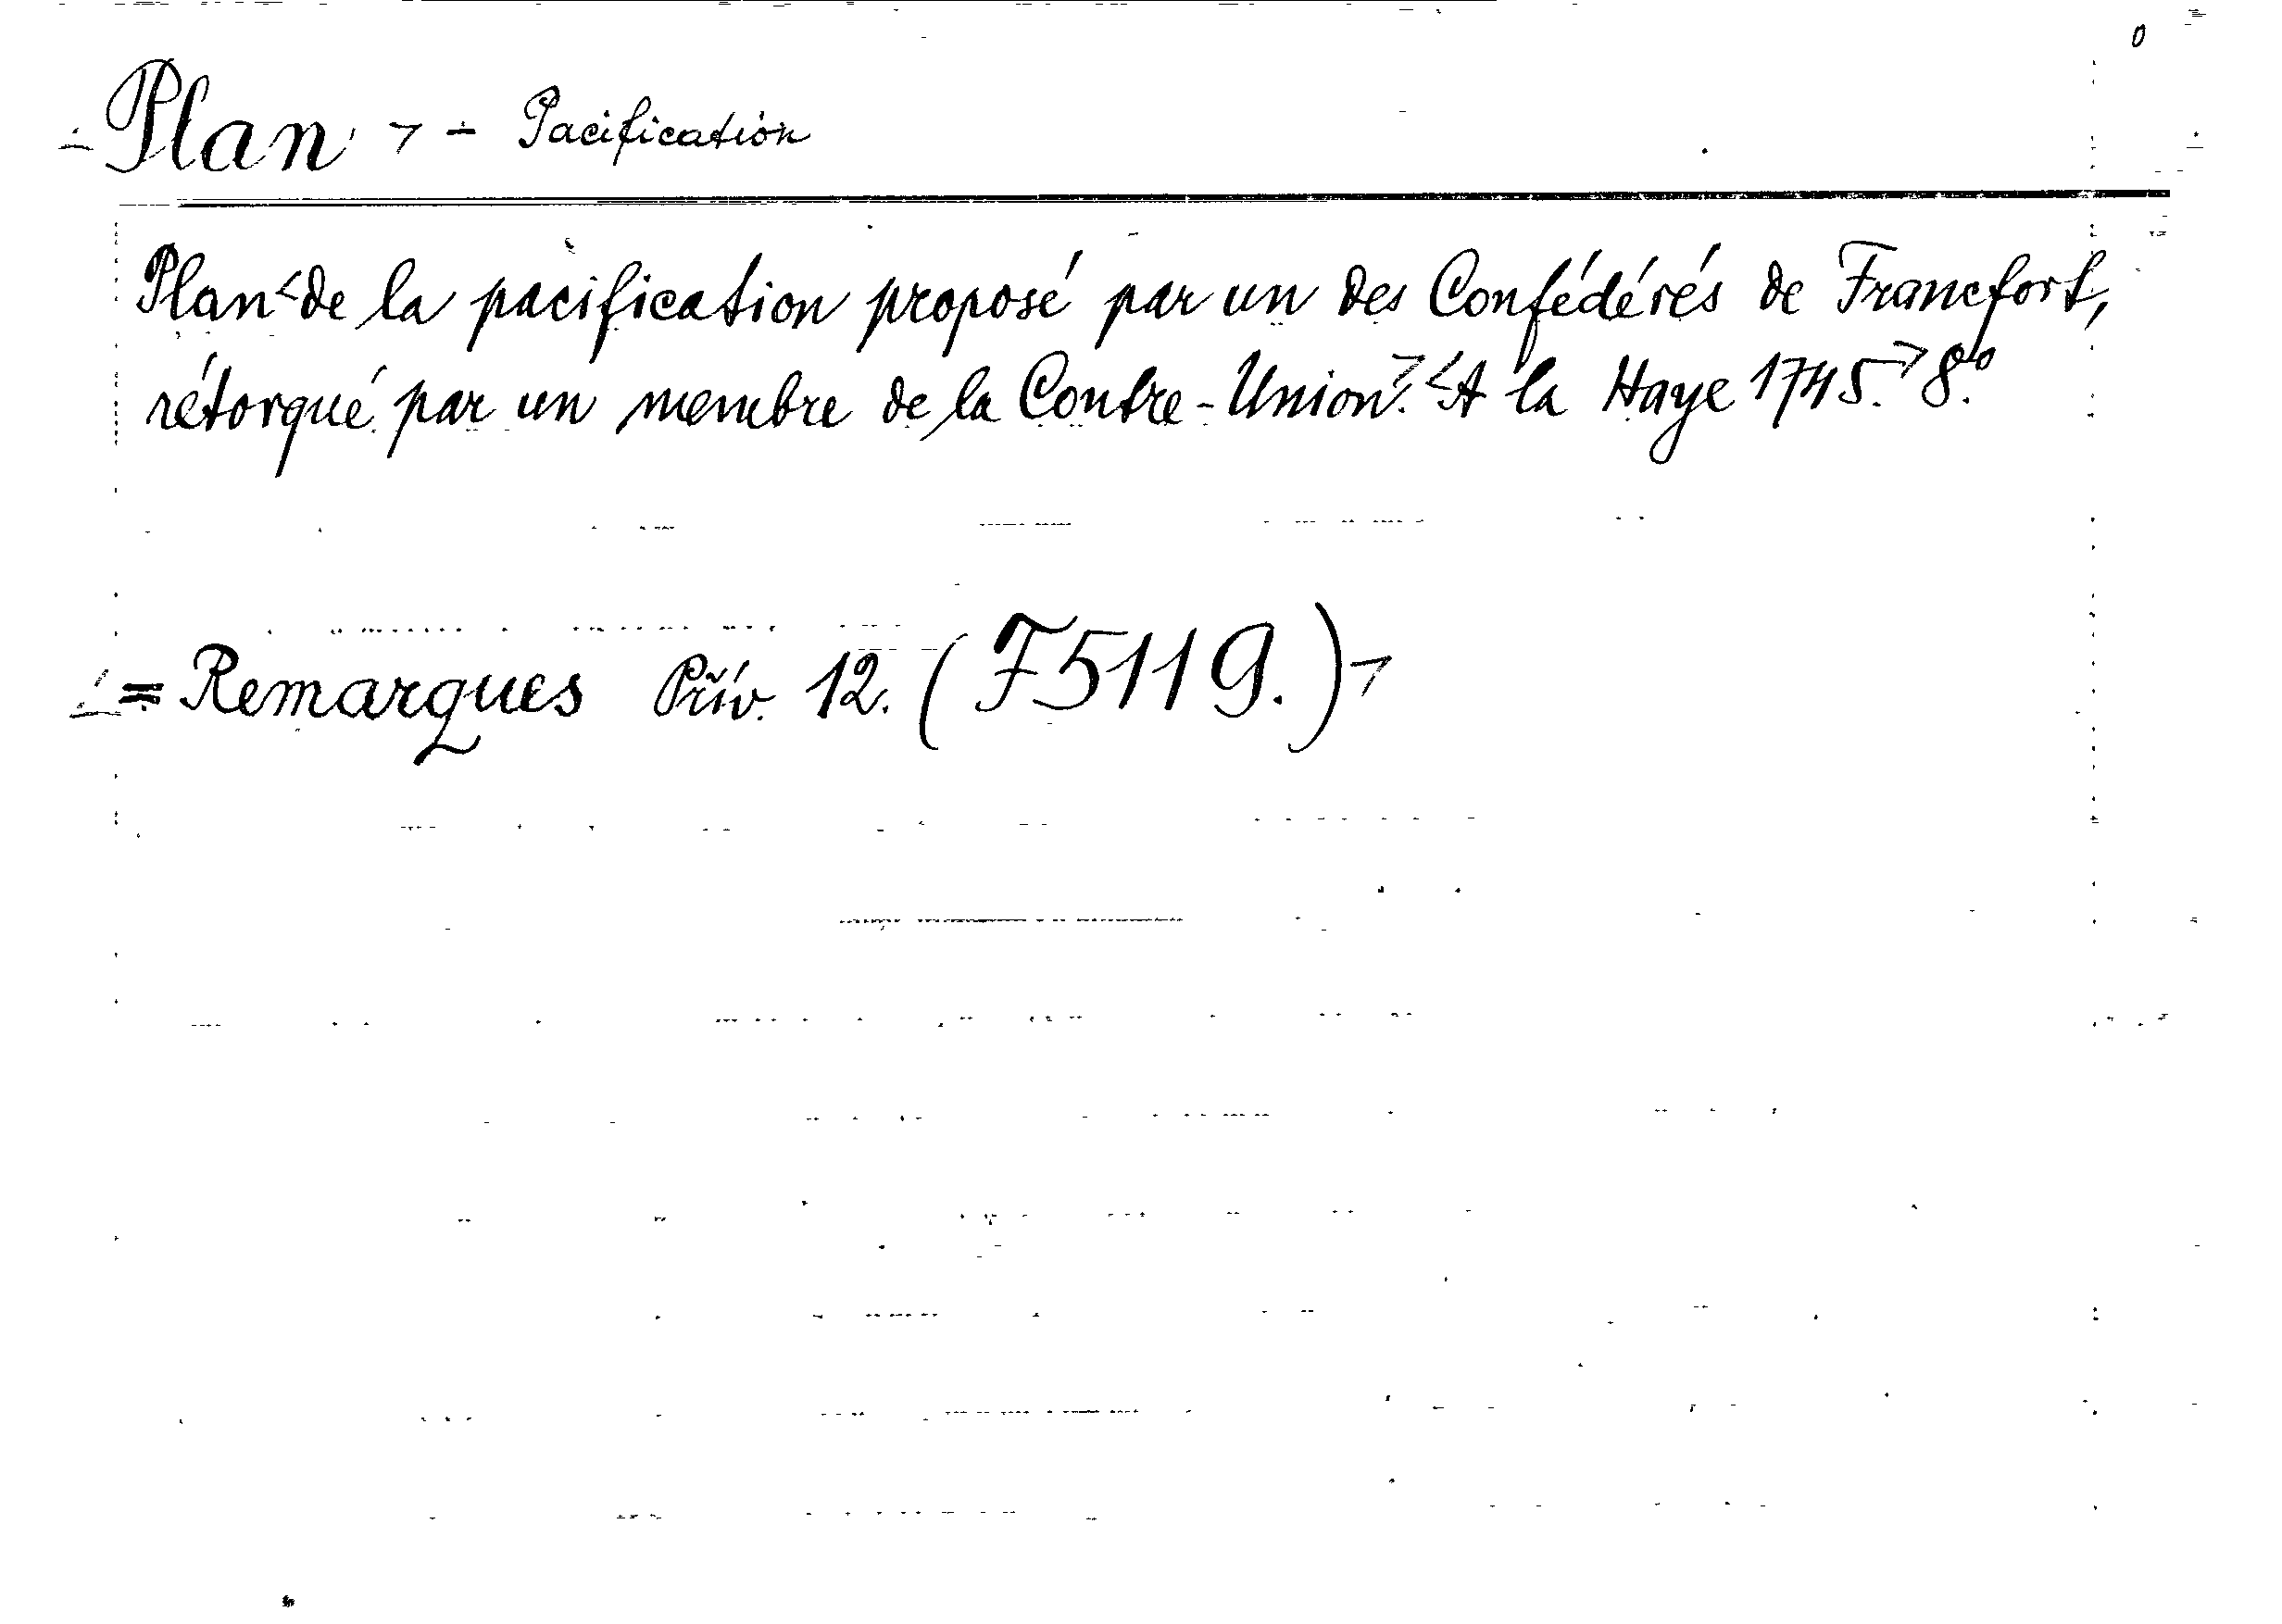 Plan > - Pacification
Plan <de la pacification proposé par un des Confédérés de Francfort,
rétorqué par un membre de la Contre-Union.> <A la Haye 1745.> 8.o
= Remarques Priv. 12. (F5119.)>